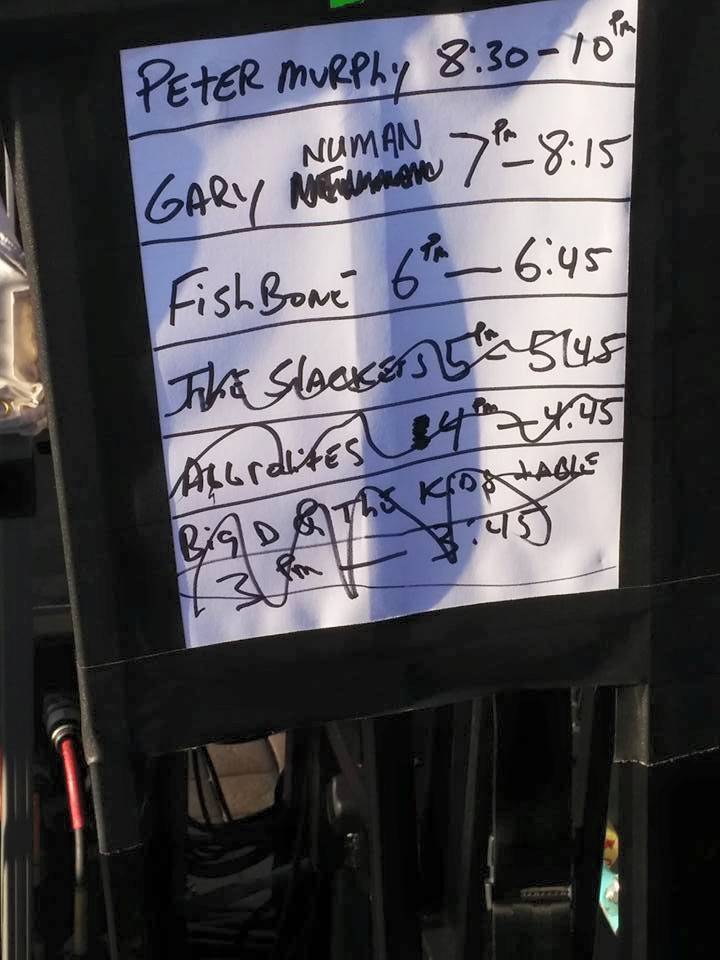 PETER MURPHY 8:30 - 10 PM
GARY NUMAN 7 PM - 8:15
FISHBONE 6 PM - 6:45
THE SLACKERS 5 PM - 5:45
AGGROLITES 4 PM - 4:45
BIG D & THE KIDS TABLE
3 PM - 3:45